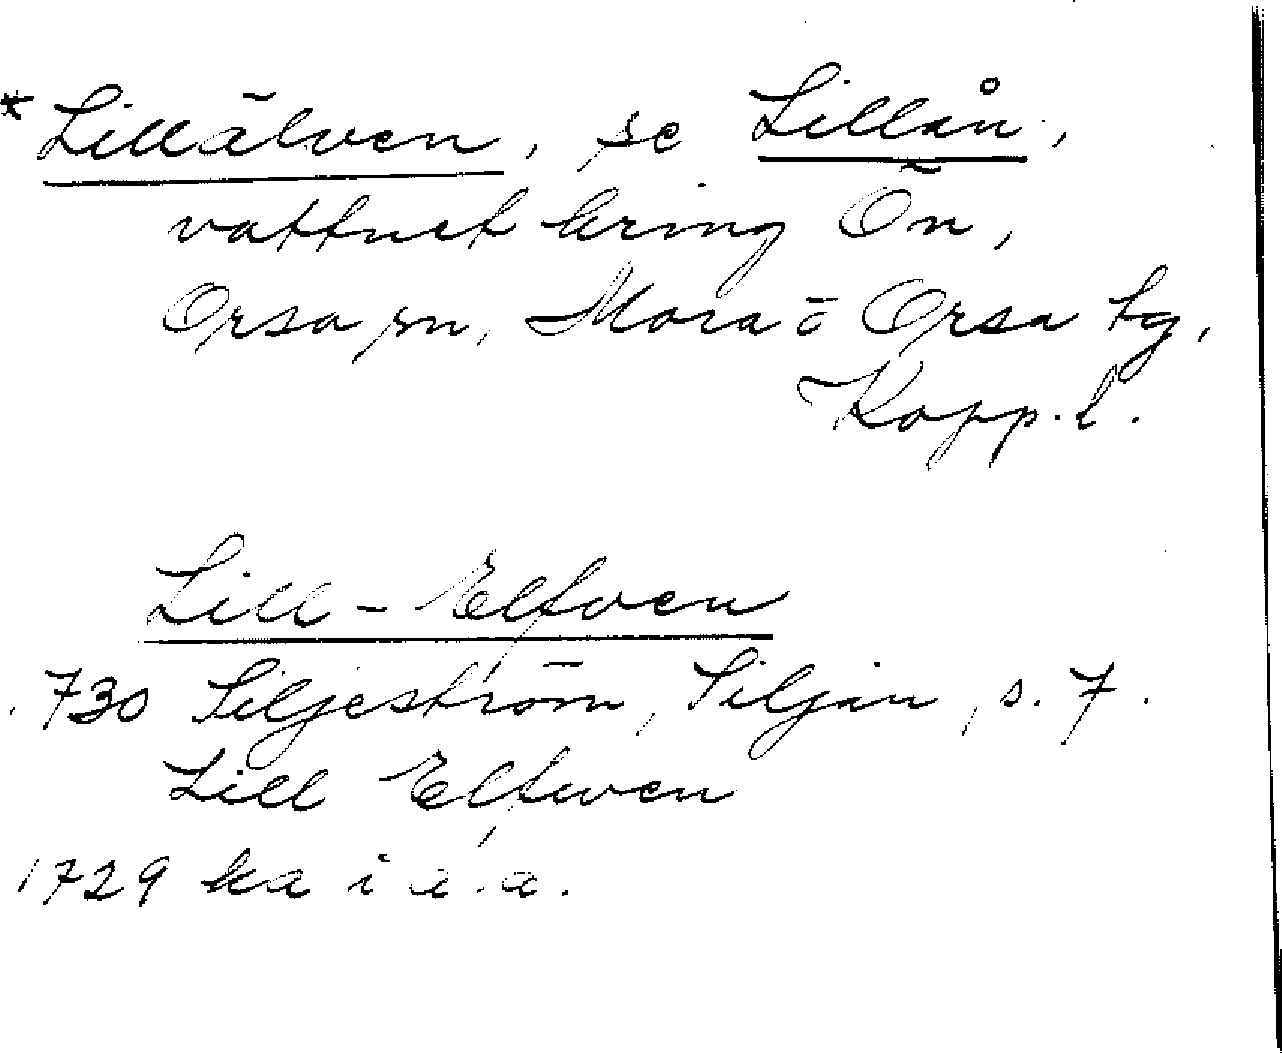 *Lillälven, se Lillån,
vattnet kring Ön,
Orsa sn, Mora o Orsa tg,
Kopp. l.
Lill-Elfven
1730 Siljeström, Siljan, s. 7.
Lill Elfwen
1729 ka i a.a.